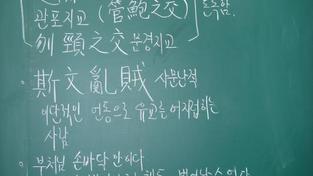 관포지교 (管鮑之交) 돈독함.
刎頸之交 문경지교
· 斯文亂賊 사문난적
이단적인 언동으로 유교를 어지럽히는
사람
· 부처님 손바닥 안이다